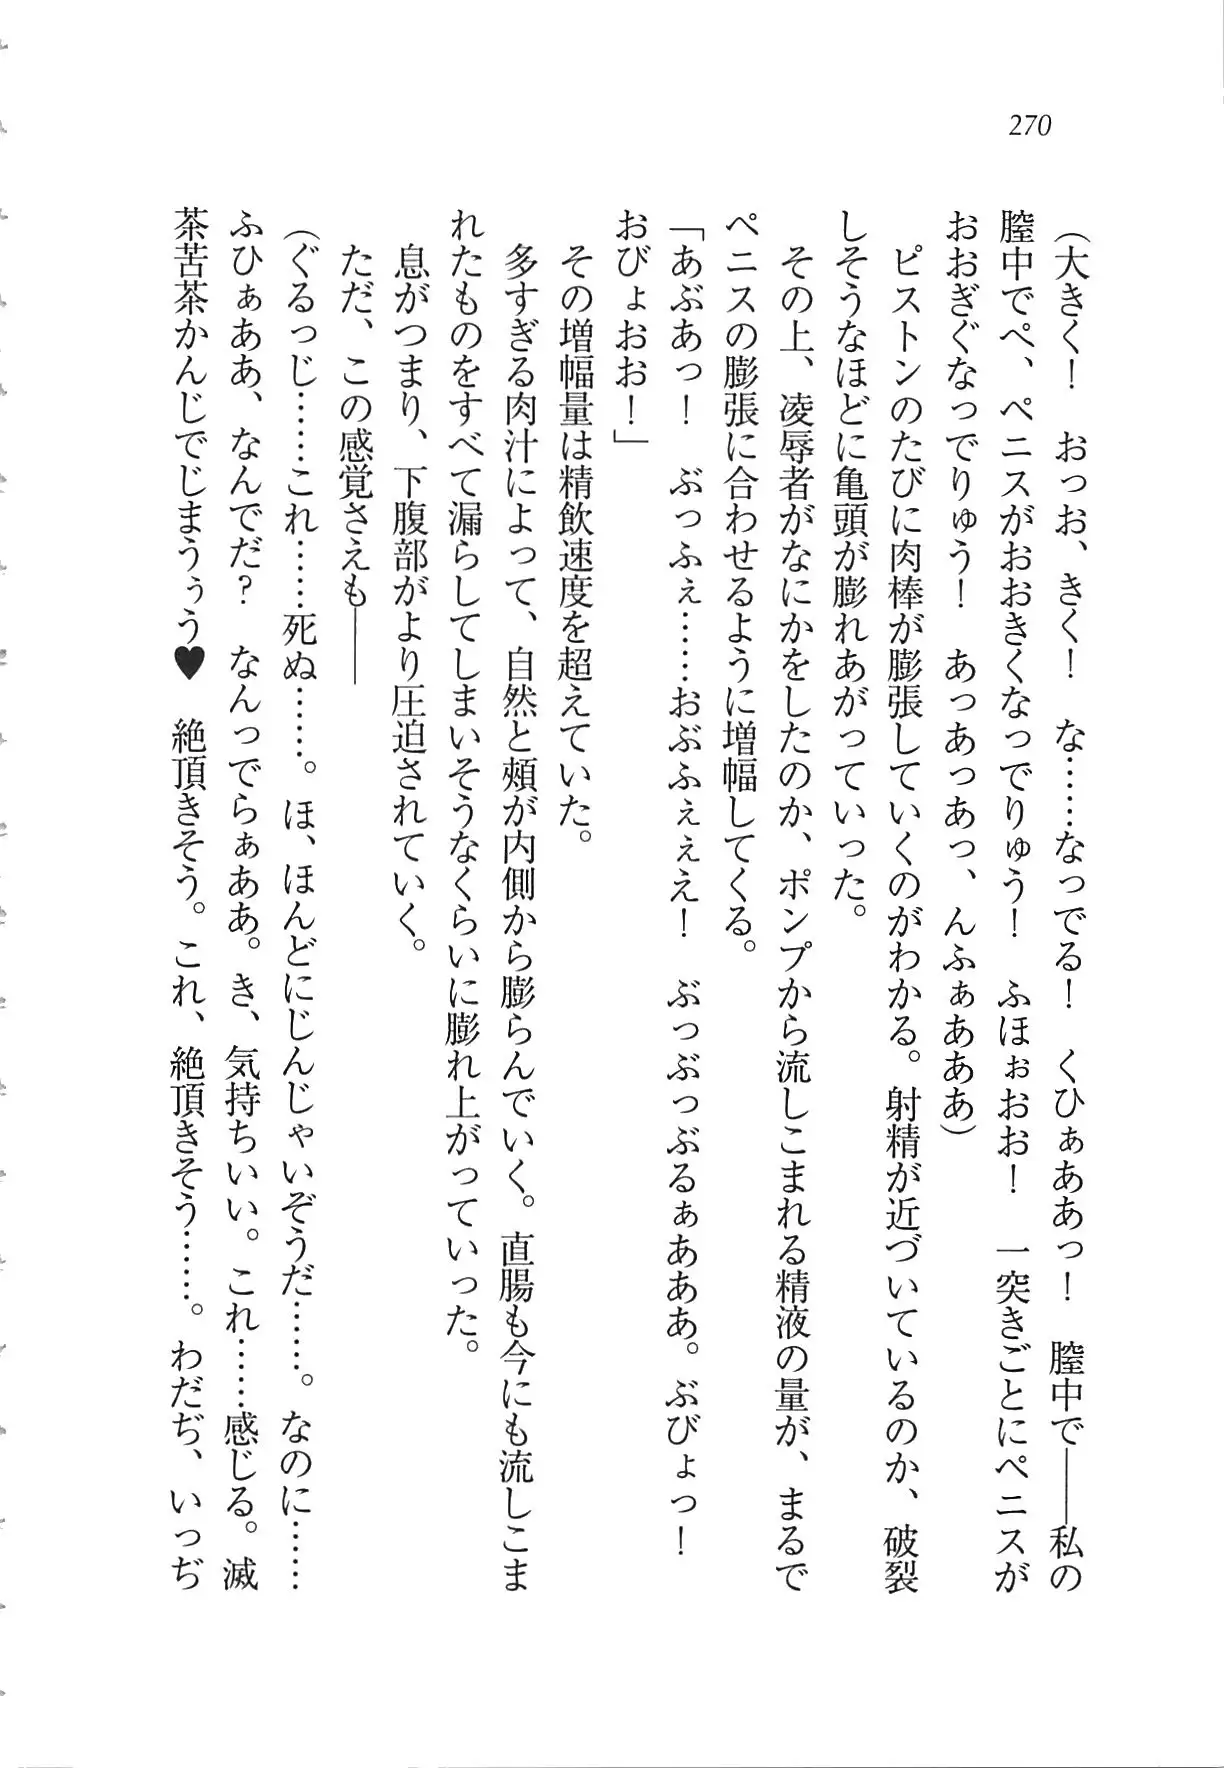 270
（大きく！　おっお、きく！　な……なっでる！　くひぁああっ！　膣中で――私の
膣中でペ、ペニスがおおきくなっでりゅう！　ふほぉおお！　一突きごとにペニスが
おおぎぐなっでりゅう！　あっあっあっ、んふぁあああ）
　ピストンのたびに肉棒が膨張していくのがわかる。射精が近づいているのか、破裂
しそうなほどに亀頭が膨れあがっていった。
　その上、凌辱者がなにかをしたのか、ポンプから流しこまれる精液の量が、まるで
ペニスの膨張に合わせるように増幅してくる。
「あぶあっ！　ぶっふぇ……おぶふぇぇえ！　ぶっぶっぶるぁあああ。ぶびょっ！
おびょおお！」
　その増幅量は精飲速度を超えていた。
　多すぎる肉汁によって、自然と頰が内側から膨らんでいく。直腸も今にも流しこま
れたものをすべて漏らしてしまいそうなくらいに膨れ上がっていった。
　息がつまり、下腹部がより圧迫されていく。
　ただ、この感覚さえも――
（ぐるっじ……これ……死ぬ……。ほ、ほんどにじんじゃいぞうだ……。なのに……
ふひぁああ、なんでだ？　なんっでらぁああ。き、気持ちいい。これ……感じる。滅
茶苦茶かんじでじまうぅう♥　絶頂きそう。これ、絶頂きそう……。わだぢ、いっぢ